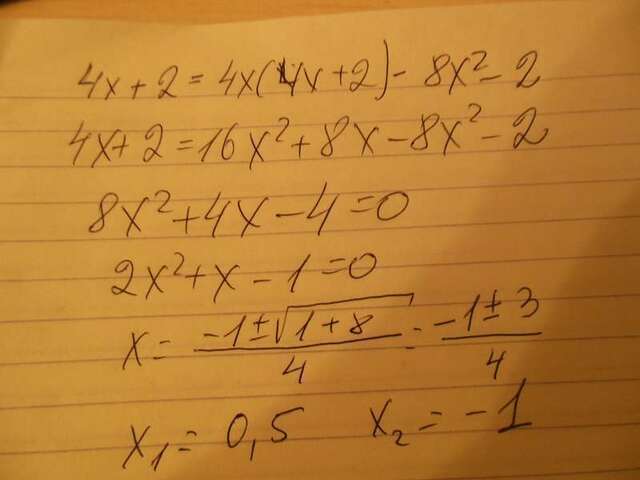 4x + 2 = 4x(4x + 2) - 8x² - 2
4x + 2 = 16x² + 8x - 8x² - 2
8x² + 4x - 4 = 0
2x² + x - 1 = 0
x = (-1 ± √(1 + 8))/4 = (-1 ± 3)/4
x₁ = 0,5 x₂ = -1